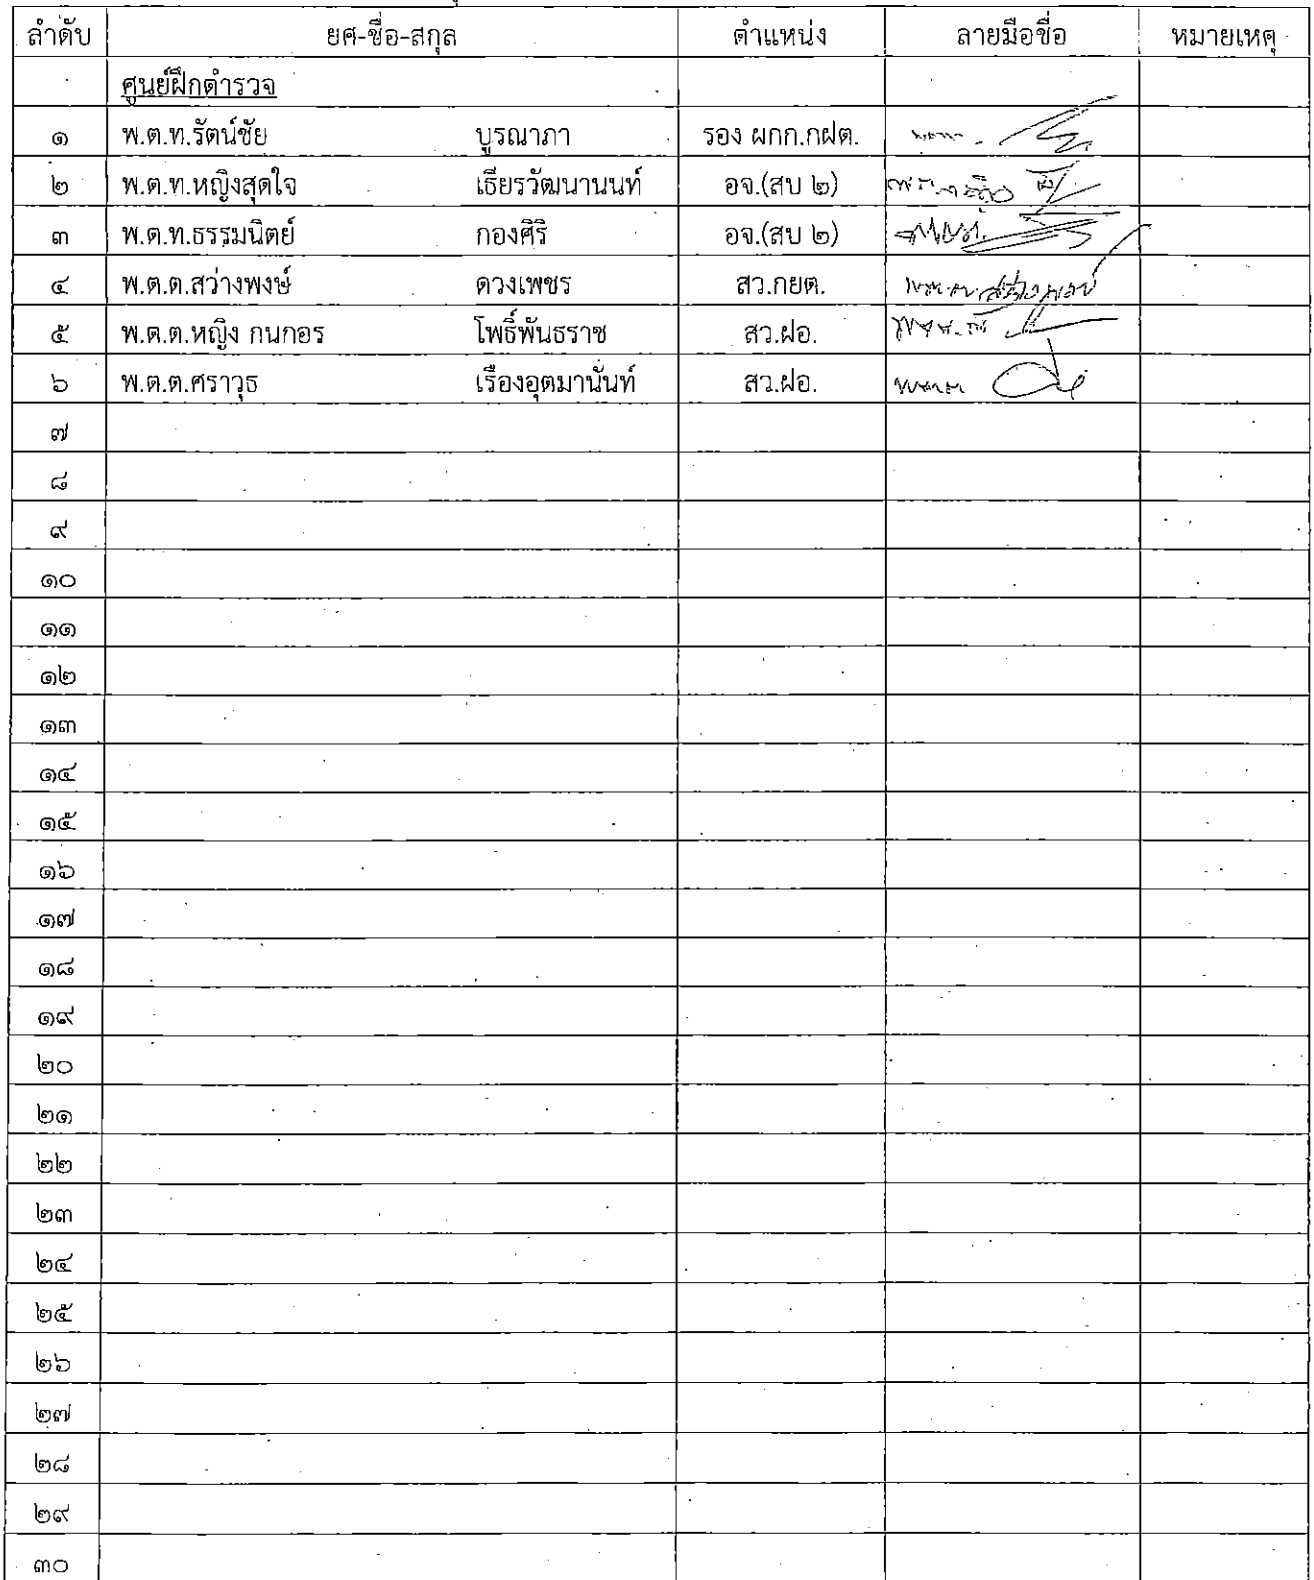 ลำดับ ยศ-ชื่อ-สกุล ตำแหน่ง ลายมือชื่อ หมายเหตุ
ศูนย์ฝึกตำรวจ
๑ พ.ต.ท.รัตน์ชัย บูรณาภา รอง ผกก.กฝต.
๒ พ.ต.ท.หญิงสุดใจ เธียรวัฒนานนท์ อจ.(สบ ๒)
๓ พ.ต.ท.ธรรมนิตย์ กองศิริ อจ.(สบ ๒)
๔ พ.ต.ต.สว่างพงษ์ ดวงเพชร สว.กยต.
๕ พ.ต.ต.หญิง กนกอร โพธิ์พันธราช สว.ฝอ.
๖ พ.ต.ต.ศราวุธ เรืองอุตมานันท์ สว.ฝอ.
๗
๘
๙
๑๐
๑๑
๑๒
๑๓
๑๔
๑๕
๑๖
๑๗
๑๘
๑๙
๒๐
๒๑
๒๒
๒๓
๒๔
๒๕
๒๖
๒๗
๒๘
๒๙
๓๐